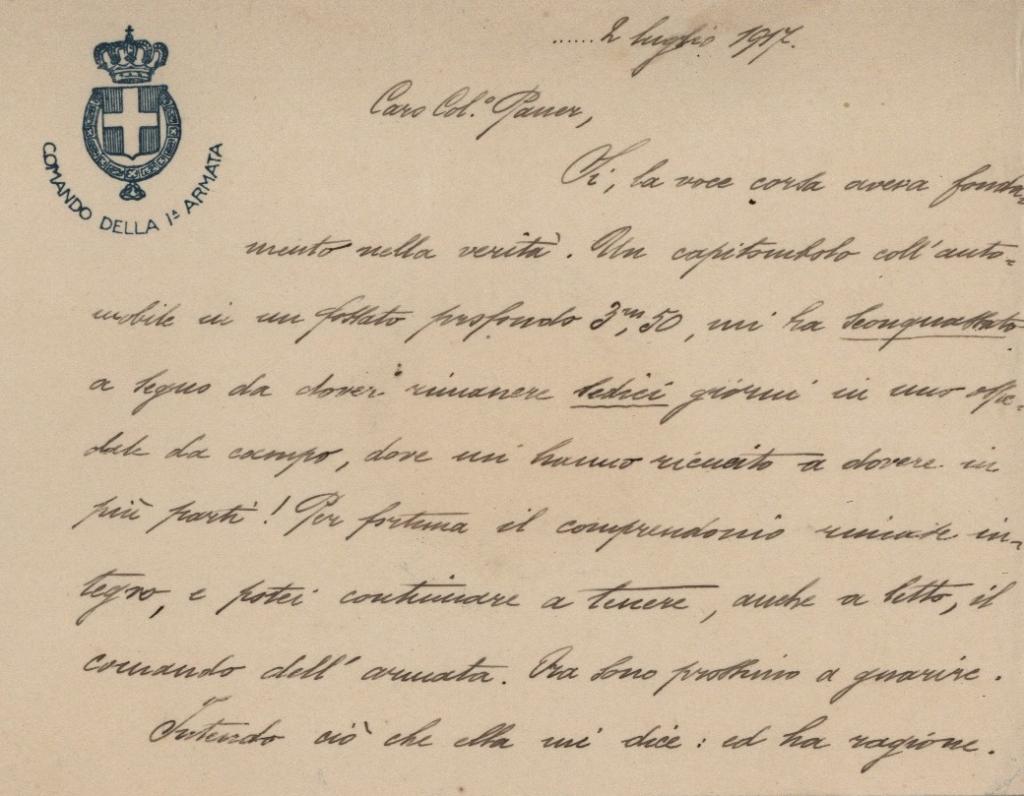 ...... 2 luglio 1917.
COMANDO DELLA 1ª ARMATA
Caro Col.º Paner,
Sì, la voce corsa aveva fonda-
mento nella verità. Un capitombolo coll'auto-
mobile in un fossato profondo 3m,50, mi ha sconquassato
a segno da dover rimanere sedici giorni in uno ospe-
dale da campo, dove mi hanno ricucito a dovere in
più parti! Per fortuna il comprendonio rimase in-
tegro, e potei continuare a tenere, anche a letto, il
comando dell'armata. Ora sono prossimo a guarire.
Intendo ciò che ella mi dice: ed ha ragione.